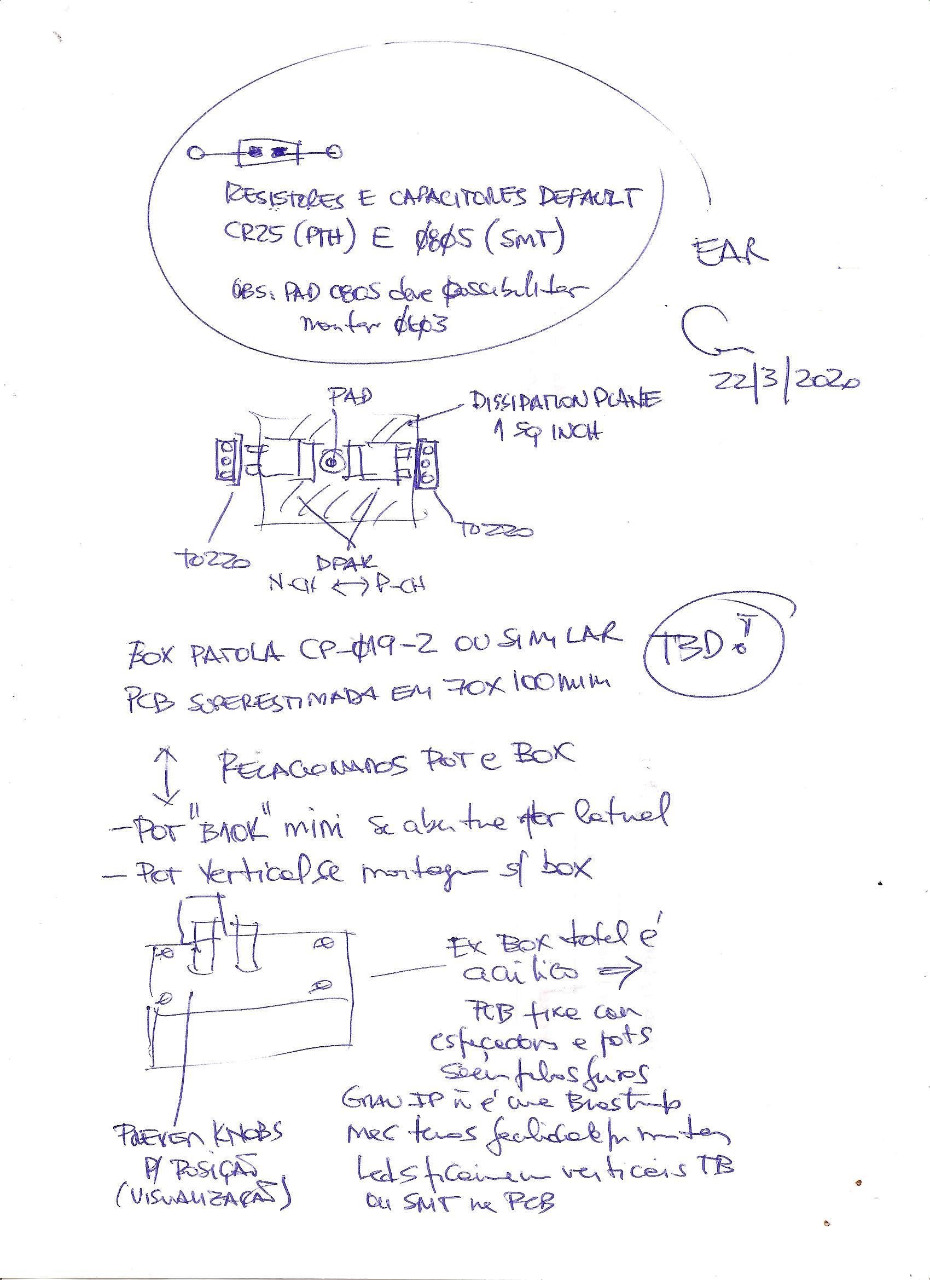 RESISTORES E CAPACITORES DEFAULT
CR25 (PTH) E Ø8Ø5 (SMT)
OBS: PAD 0805 deve possibilitar
montar Ø6Ø3
EAR
22/3/2020
PAD
DISSIPATION PLANE
1 SQ INCH
TO220
TO220
DPAK
N-CH ↔ P-CH
BOX PATOLA CP-Ø19-2 OU SIMILAR
TBD!
PCB SUPERESTIMADA EM 70X100mm
RELACIONADOS POT e BOX
- POT "B10K" mini se abertura for lateral
- Pot vertical se montagem s/ box
Ex Box total é
acrílico ⇒
PCB fixa com
espaçadores e pots
saem pelos furos
Grau IP ñ é
mec temos
Leds ficariam verticais TB
ou SMT na PCB
PREVER KNOBS
P/ POSIÇÃO
(VISUALIZAÇÃO)